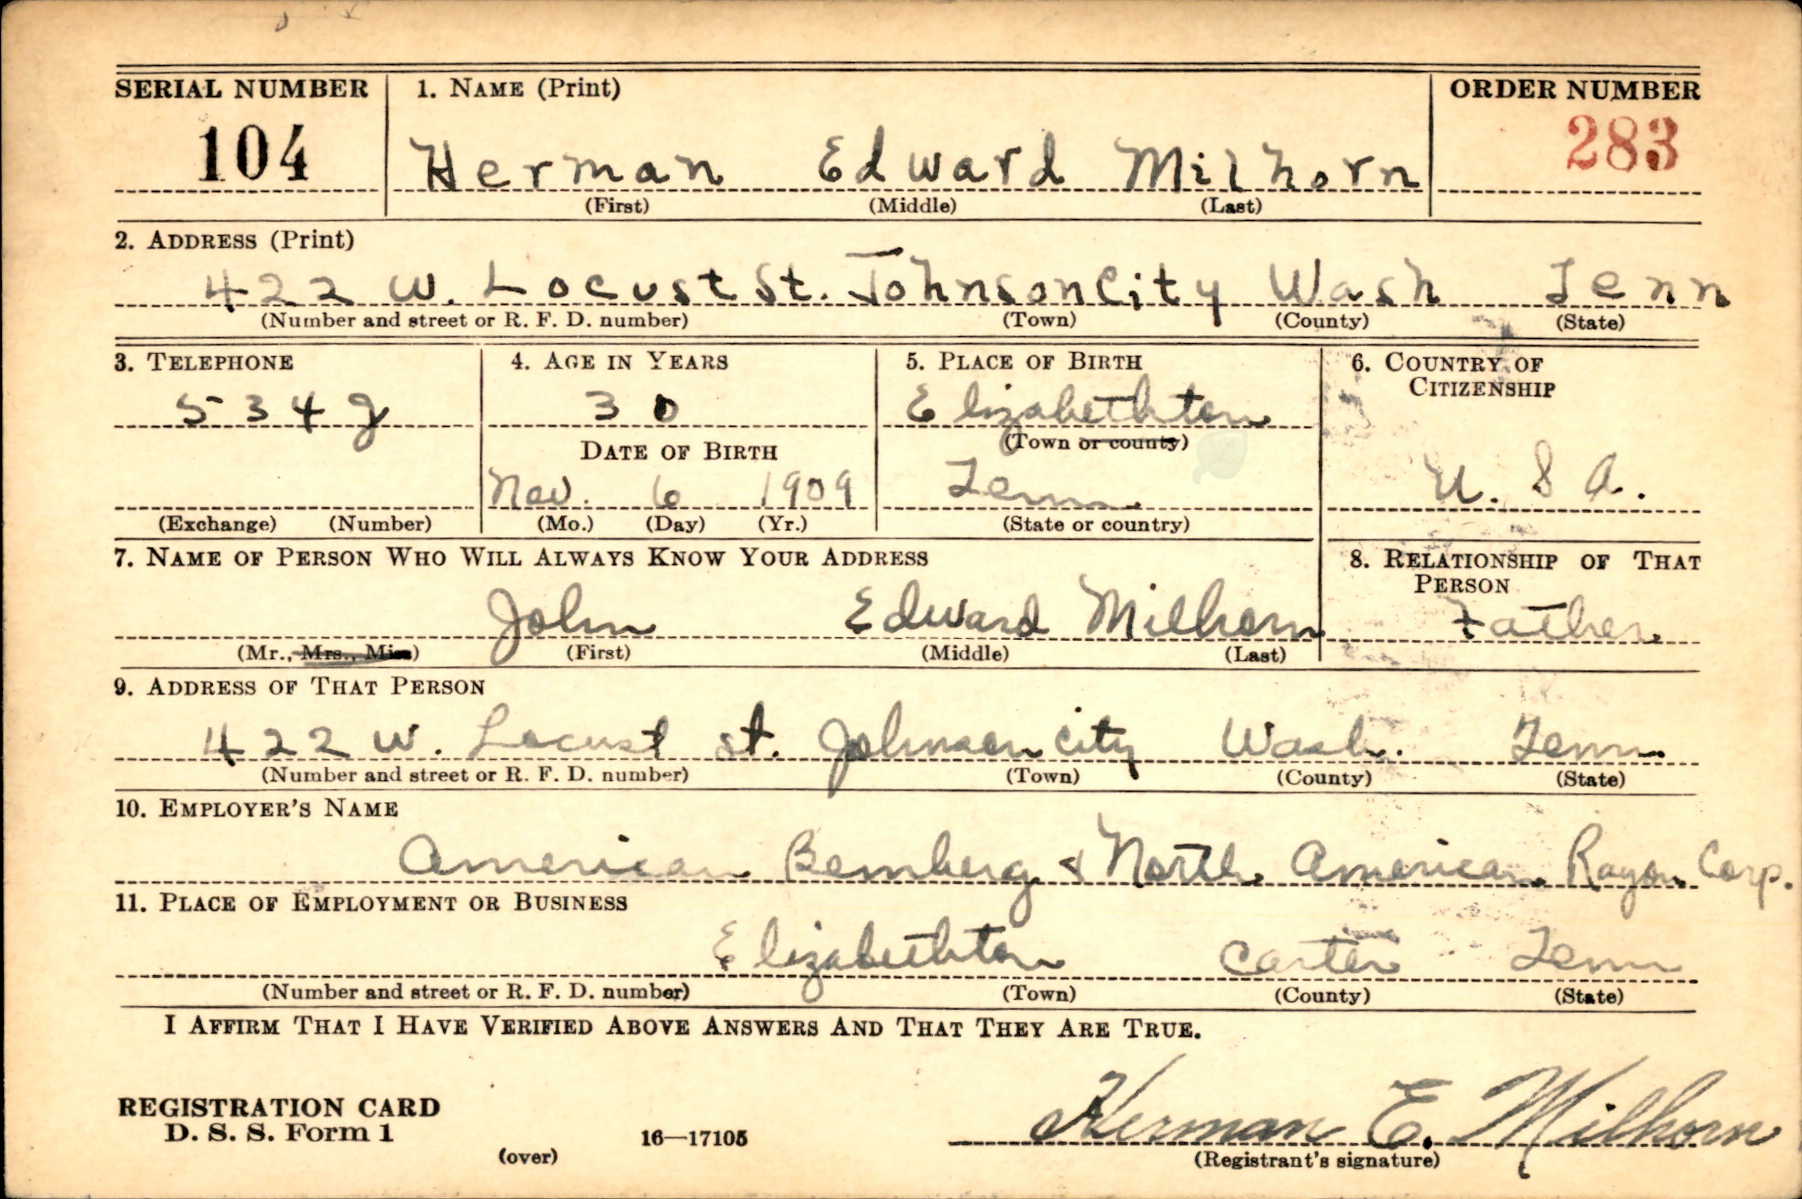 SERIAL NUMBER 1. NAME (Print) ORDER NUMBER
104 Herman Edward Milhorn 283
(First) (Middle) (Last)
2. ADDRESS (Print)
422 W. Locust St. Johnson City Wash Tenn
(Number and street or R. F. D. number) (Town) (County) (State)
3. TELEPHONE 4. AGE IN YEARS 5. PLACE OF BIRTH 6. COUNTRY OF
CITIZENSHIP
534J 30 Elizabethton
DATE OF BIRTH (Town or county)
Nov. 6 1909 Tenn. U. S A.
(Exchange) (Number) (Mo.) (Day) (Yr.) (State or country)
7. NAME OF PERSON WHO WILL ALWAYS KNOW YOUR ADDRESS 8. RELATIONSHIP OF THAT
PERSON
John Edward Milhorn Father
(Mr., Mrs., Miss) (First) (Middle) (Last)
9. ADDRESS OF THAT PERSON
422 W. Locust St. Johnson City Wash. Tenn.
(Number and street or R. F. D. number) (Town) (County) (State)
10. EMPLOYER'S NAME
American Bemberg & North American Rayon Corp.
11. PLACE OF EMPLOYMENT OR BUSINESS
Elizabethton Carter Tenn
(Number and street or R. F. D. number) (Town) (County) (State)
I AFFIRM THAT I HAVE VERIFIED ABOVE ANSWERS AND THAT THEY ARE TRUE.
REGISTRATION CARD
D. S. S. Form 1
(over) 16—17105
Herman E. Milhorn
(Registrant's signature)